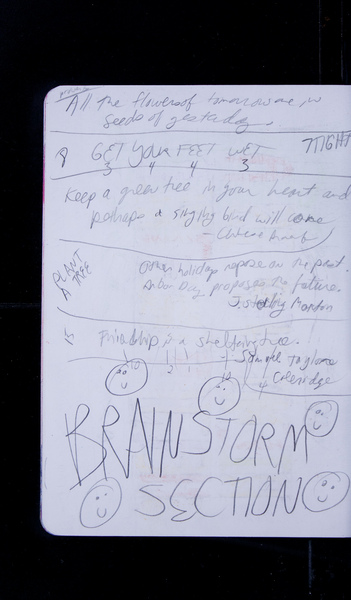 All the flowers of tomorrow are in
seeds of yesterday.
GET YOUR FEET WET
3 4 4 3
Keep a green tree in your heart and
perhaps a singing bird will come
- Chinese Proverb
PLANT
A
TREE
Other holidays repose on the past.
Arbor Day proposes the future.
J. Sterling Morton
15
Friendship is a sheltering tree.
10 2 1
- Samuel Taylor
Coleridge
BRAINSTORM
SECTION